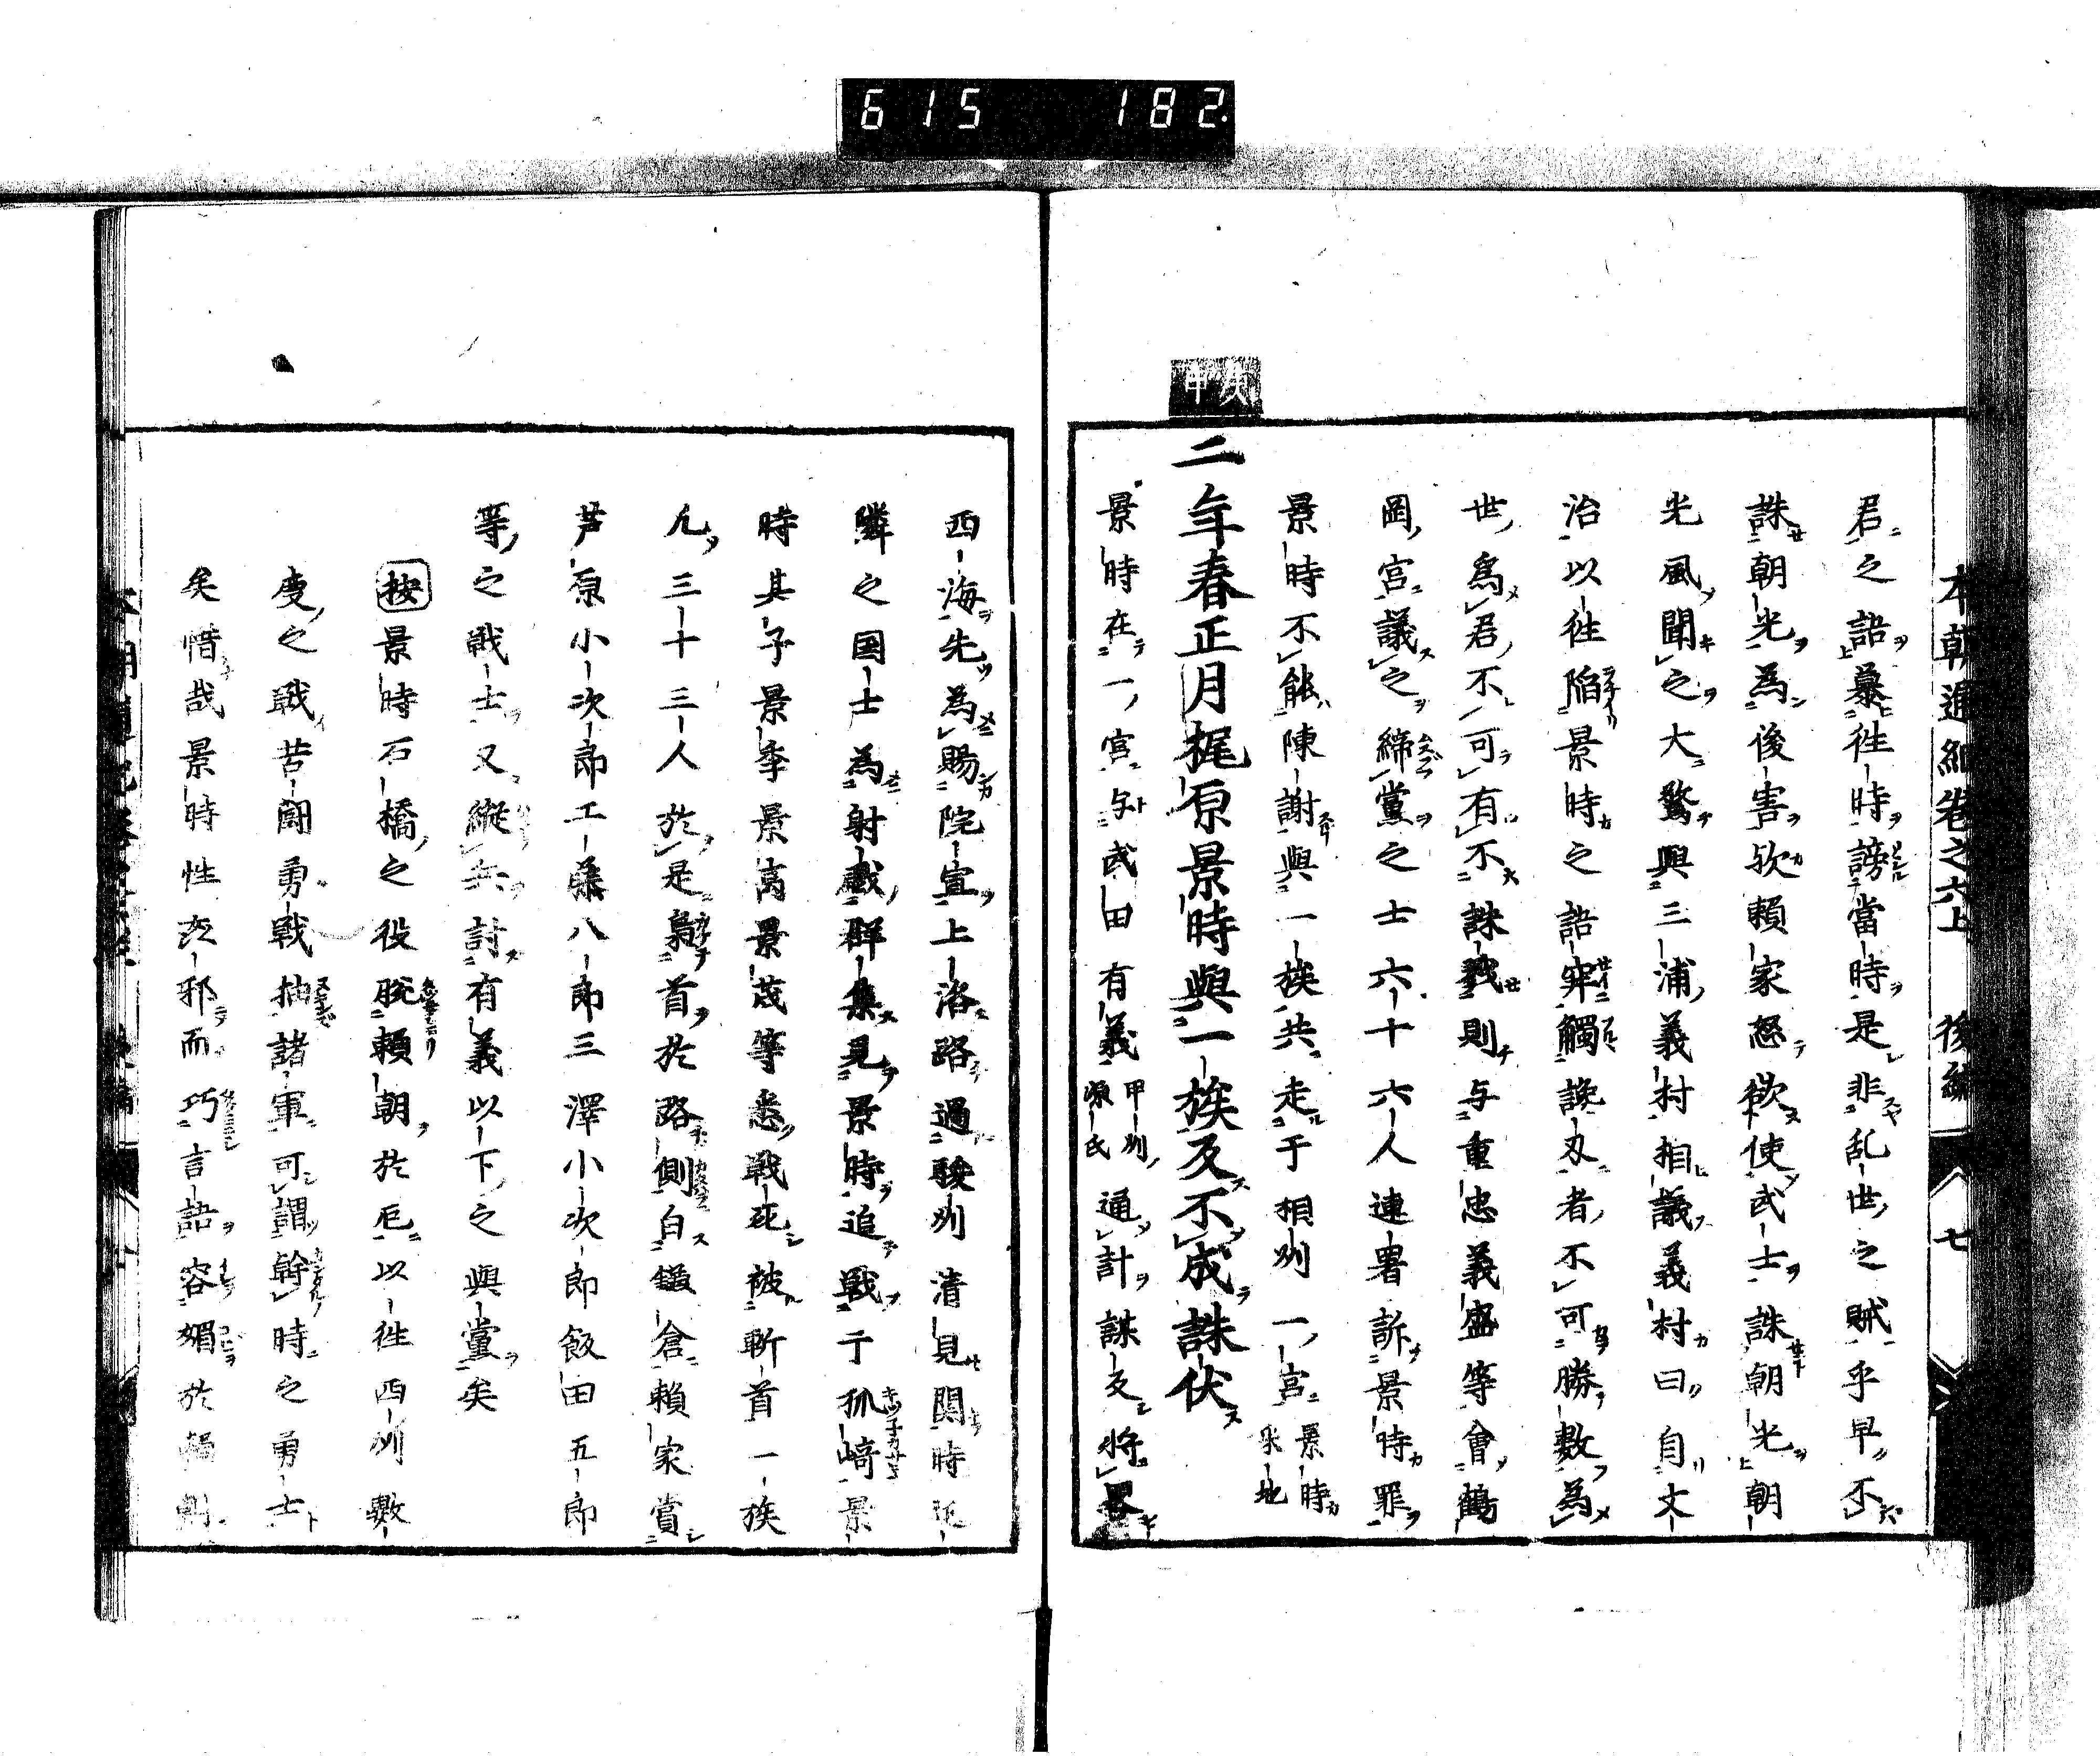 615 182
本朝通紀巻之六上 後編 七
君之語慕徃時謗當時是非乱世之賊乎早不
誅朝光為後害欤頼家怒欲使武士誅朝光朝
光風聞之大驚與三浦義村相議義村曰自文
治以徃陷景時之語牢觸讒刄者不可勝數為
世為君不可有不誅戮則与重忠義盛等會鶴
岡宮議之締黨之士六十六人連署訴景時罪
景時不能陳謝與一族共走于相州一宮景時
采地
庚申
二年春正月梶原景時與一族反不成誅伏
景時在一宮与武田有義甲州
源氏通計謀反将畧
西海先為賜院宣上洛路過駿州清見関時近
隣之国士為射戯群集見景時追戦于狐﨑景
時其子景季景高景茂等悉戦死被斬首一族
凡三十三人於是梟首於路側白鎌倉頼家賞
芦原小次郎工藤八郎三澤小次郎飯田五郎
等之戦士又縦兵討有義以下之與黨矣
按景時石橋之役脱頼朝於厄以徃西州數
度之戦苦闘勇戦抽諸軍可謂幹時之勇士
矣惜哉景時性邪而巧言語容媚於頼朝